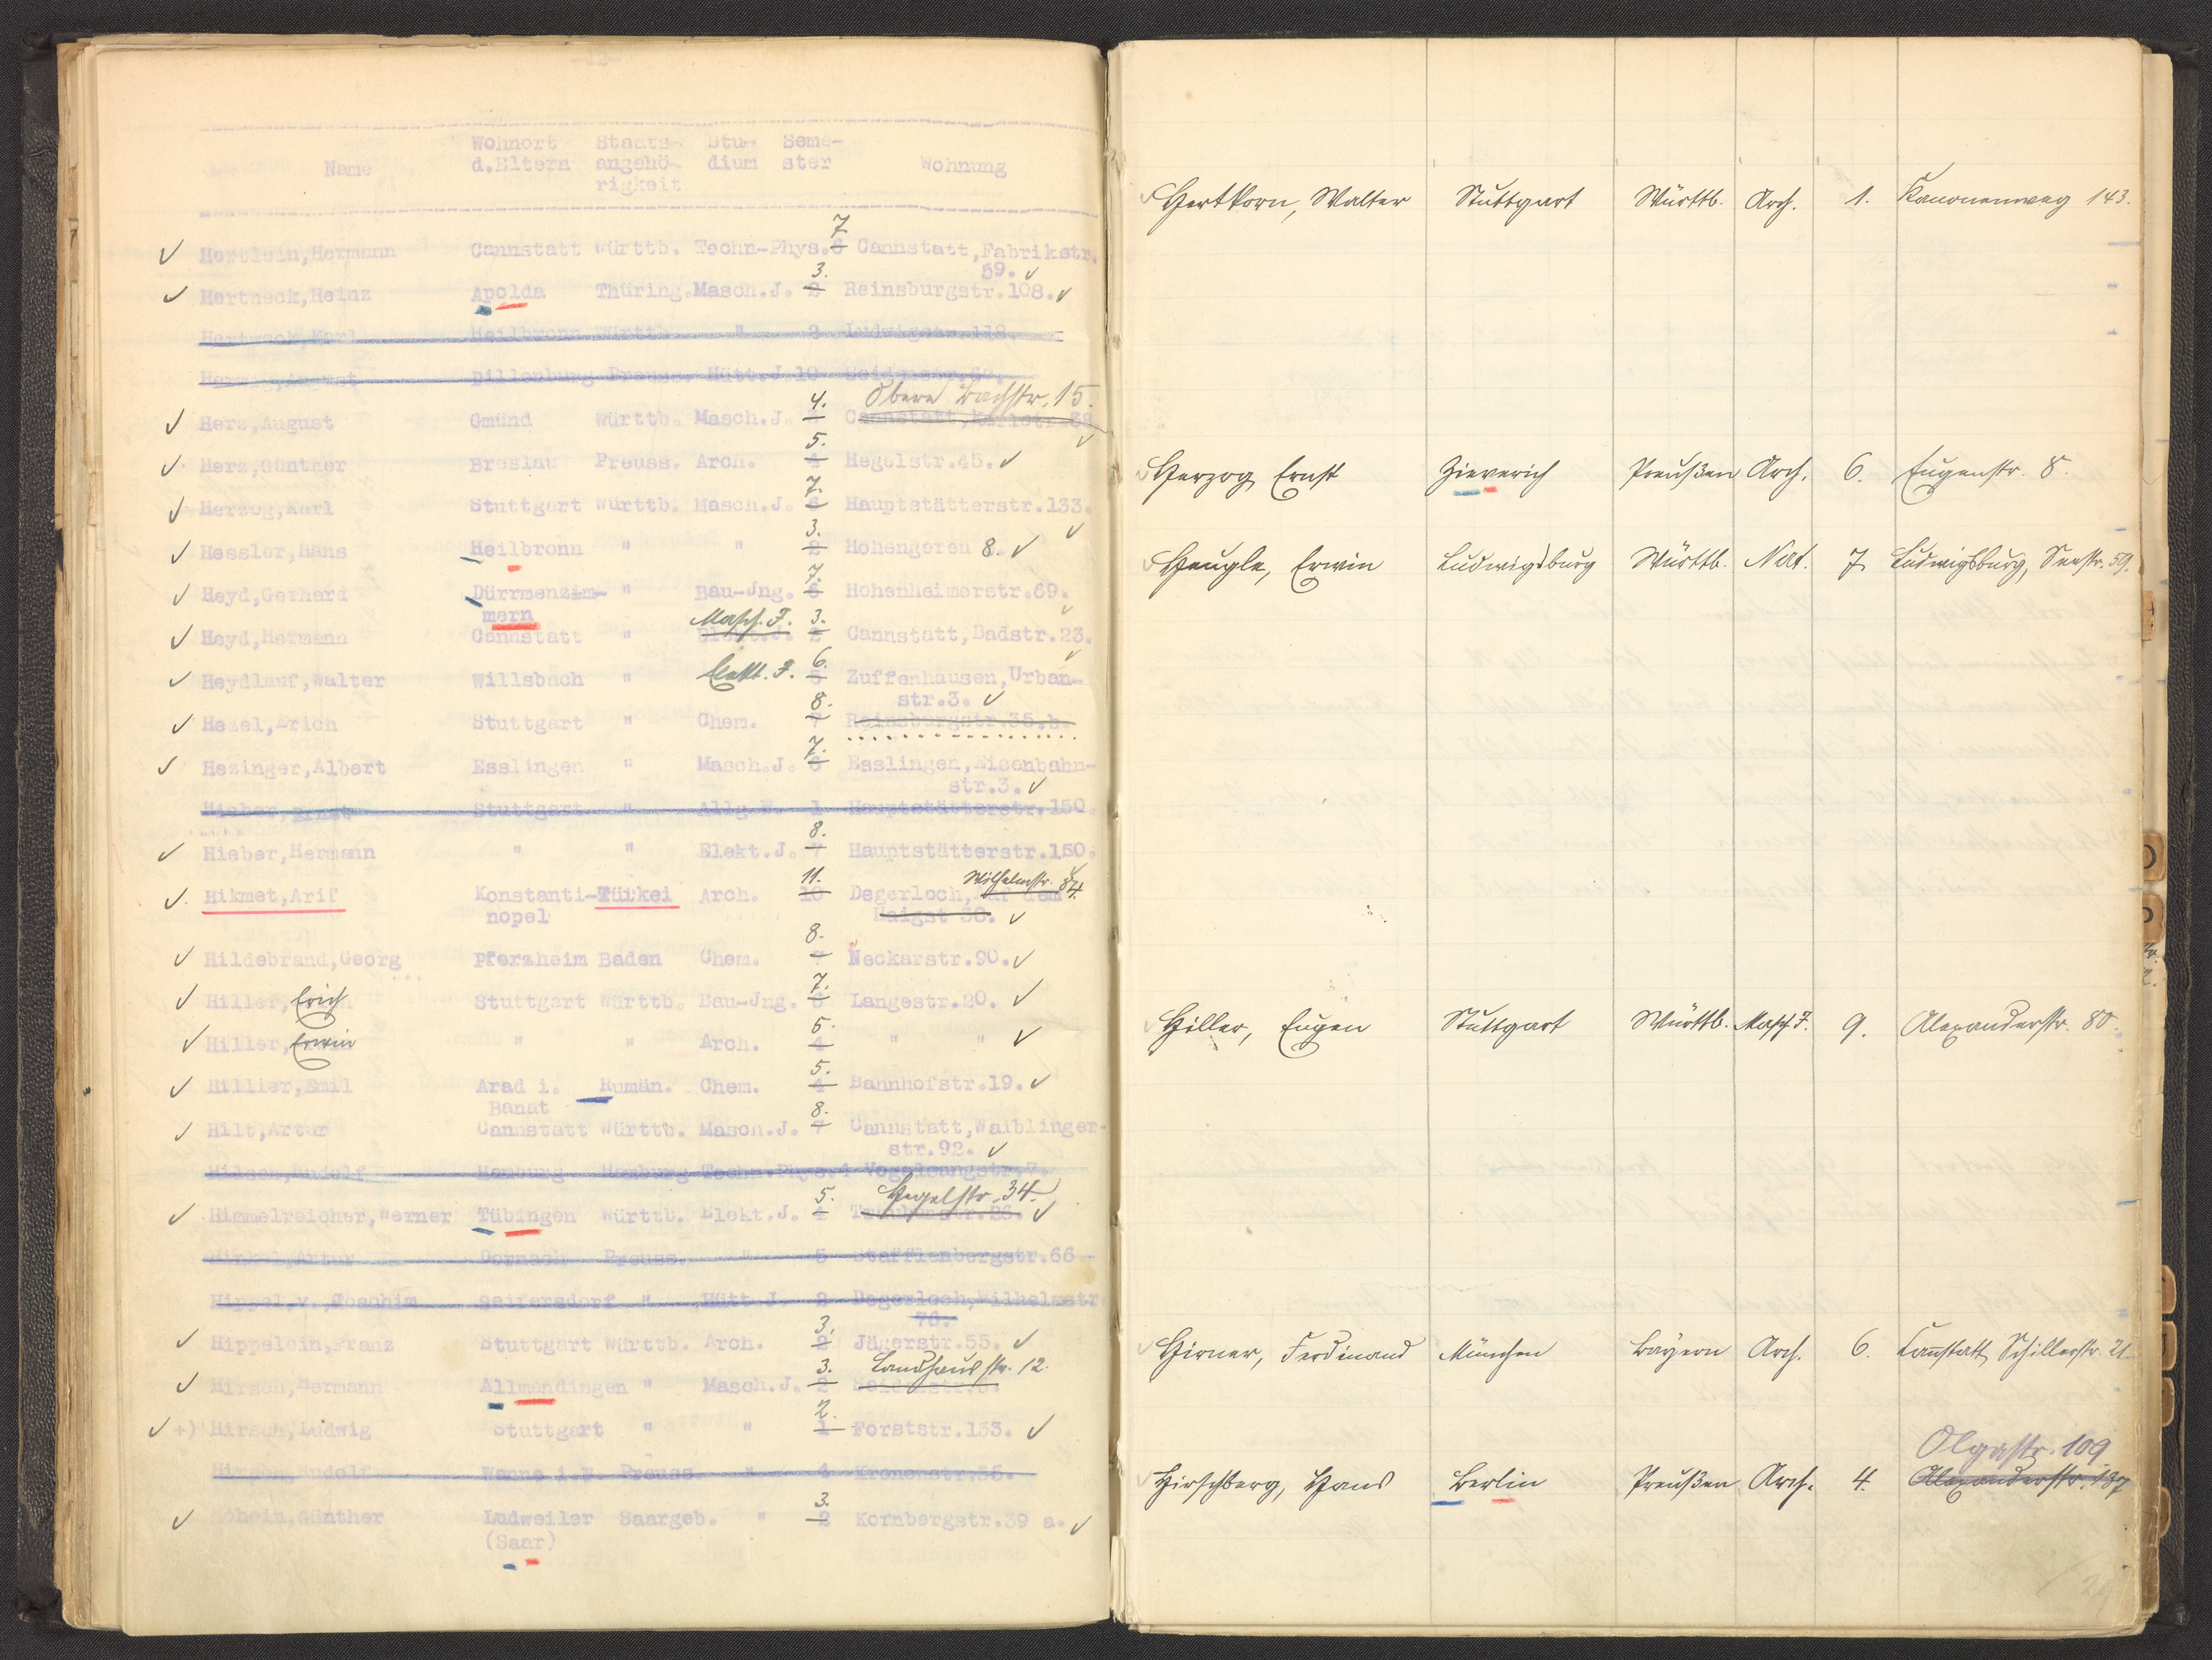 Wohnort Staats- Stu- Seme-
Name d.Eltern angehö- dium ster Wohnung
rigkeit
7
✓ Hertlein,Hermann Cannstatt Württb. Techn-Phys.6 Cannstatt,Fabrikstr.
3. 59. ✓
✓ Hertneck,Heinz Apolda Thüring.Masch.J. 2 Reinsburgstr.108.✓
Hertneck,Karl Heilbronn Württb. " 2 Ludwigstr.118.
August Dillenburg Preuss. Hütt.J.10
4. Obere Bachstr. 15.
✓ Herz,August Gmünd Württb. Masch.J. Cannstatt,Karlstr.38
5. ✓
✓ Herz,Günther Breslau Preuss. Arch. 4 Hegelstr.45. ✓
7.
✓ Herzog,Karl Stuttgart Württb. Masch.J. 6 Hauptstätterstr.133.
3. ✓
✓ Hessler,Hans Heilbronn " " 2 Hohengeren 8. ✓
7.
✓ Heyd,Gerhard Dürrmenzim- " Bau-Jng. 6 Hohenheimerstr.69.
mern Masch. J. 3. ✓
✓ Heyd,Hermann Cannstatt " Elekt.J. 2 Cannstatt,Badstr.23.
6. ✓
✓ Heydlauf,Walter Willsbach " Elekt. J. 5 Zuffenhausen,Urban-
8. str.3. ✓
✓ Hezel,Erich Stuttgart " Chem. 7 Reinsburgstr.35.b.
7.
✓ Hezinger,Albert Esslingen " Masch.J. 6 Esslingen,Eisenbahn-
str.3. ✓
Hieber,Ernst Stuttgart " Allg.W. 1 Hauptstätterstr.150.
8.
✓ Hieber,Hermann " " Elekt.J. 7 Hauptstätterstr.150.
11. Wilhelmstr. 84. ✓
✓ Hikmet,Arif Konstanti-Türkei Arch. 10 Degerloch,Auf dem
nopel Haigst 38. ✓
8.
✓ Hildebrand,Georg Pforzheim Baden Chem. 7 Neckarstr.90.✓
7.
✓ Hiller, Erich Stuttgart Württb. Bau-Jng. 6 Langestr.20. ✓
5.
✓ Hiller, Erwin " " Arch. 4 " " ✓
5.
✓ Hillier,Emil Arad i. Rumän. Chem. 4 Bahnhofstr.19. ✓
Banat 8.
✓ Hilt,Artur Cannstatt Württb. Masch.J. 7 Cannstatt,Waiblinger-
str.92. ✓
Rudolf Hamburg Hamburg Techn.Phys.4 Vogelsangstr.7.
5. Hegelstr. 34.
✓ Himmelreicher,Werner Tübingen Württb. Elekt.J. 4 ✓
Artur Dornach Preuss. " 5 Stafflenbergstr.66
Hippel,v.,Joachim Seifersdorf " Hütt.J. 2 Degerloch,Wilhelmstr
3. 76.
✓ Hippelein,Franz Stuttgart Württb. Arch. 2 Jägerstr.55. ✓
3. Landhausstr. 12.
✓ Hirsch,Hermann Allmendingen " Masch.J. 2 Seidenstr.
2.
✓ +) Hirsch,Ludwig Stuttgart " " 1 Forststr.133. ✓
Rudolf Wanne i.W. Preuss. " 4 Kronenstr.36.
3.
✓ Hohein,Günther Ludweiler Saargeb. " 2 Kornbergstr.39 a. ✓
(Saar)
✓ Hertkorn, Walter Stuttgart Württb. Arch. 1. Kanonenweg 143.
✓ Herzog Ernst Zieverich Preußen Arch. 6. Eugenstr. 8.
✓ Heugle, Erwin Ludwigsburg Württb. Nat. 7 Ludwigsburg, Seestr. 59.
✓ Hiller, Eugen Stuttgart Württb. Masch. J. 9. Alexanderstr. 80.
✓ Hirner, Ferdinand München Bayern Arch. 6. Cannstatt, Schillerstr. 21.
Olgastr. 109.
✓ Hirschberg, Hans Berlin Preußen Arch. 4. Alexanderstr. 137